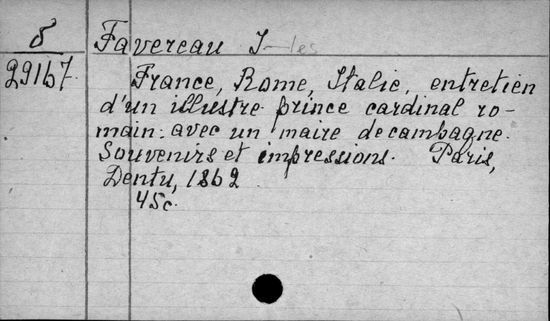 8
Favereau J-les
29167.
France, Rome, Italie, entretien
d'un illustre prince cardinal ro-
main avec un maire de campagne.
Souvenirs et impressions. Paris,
Dentu, 1862
45c.